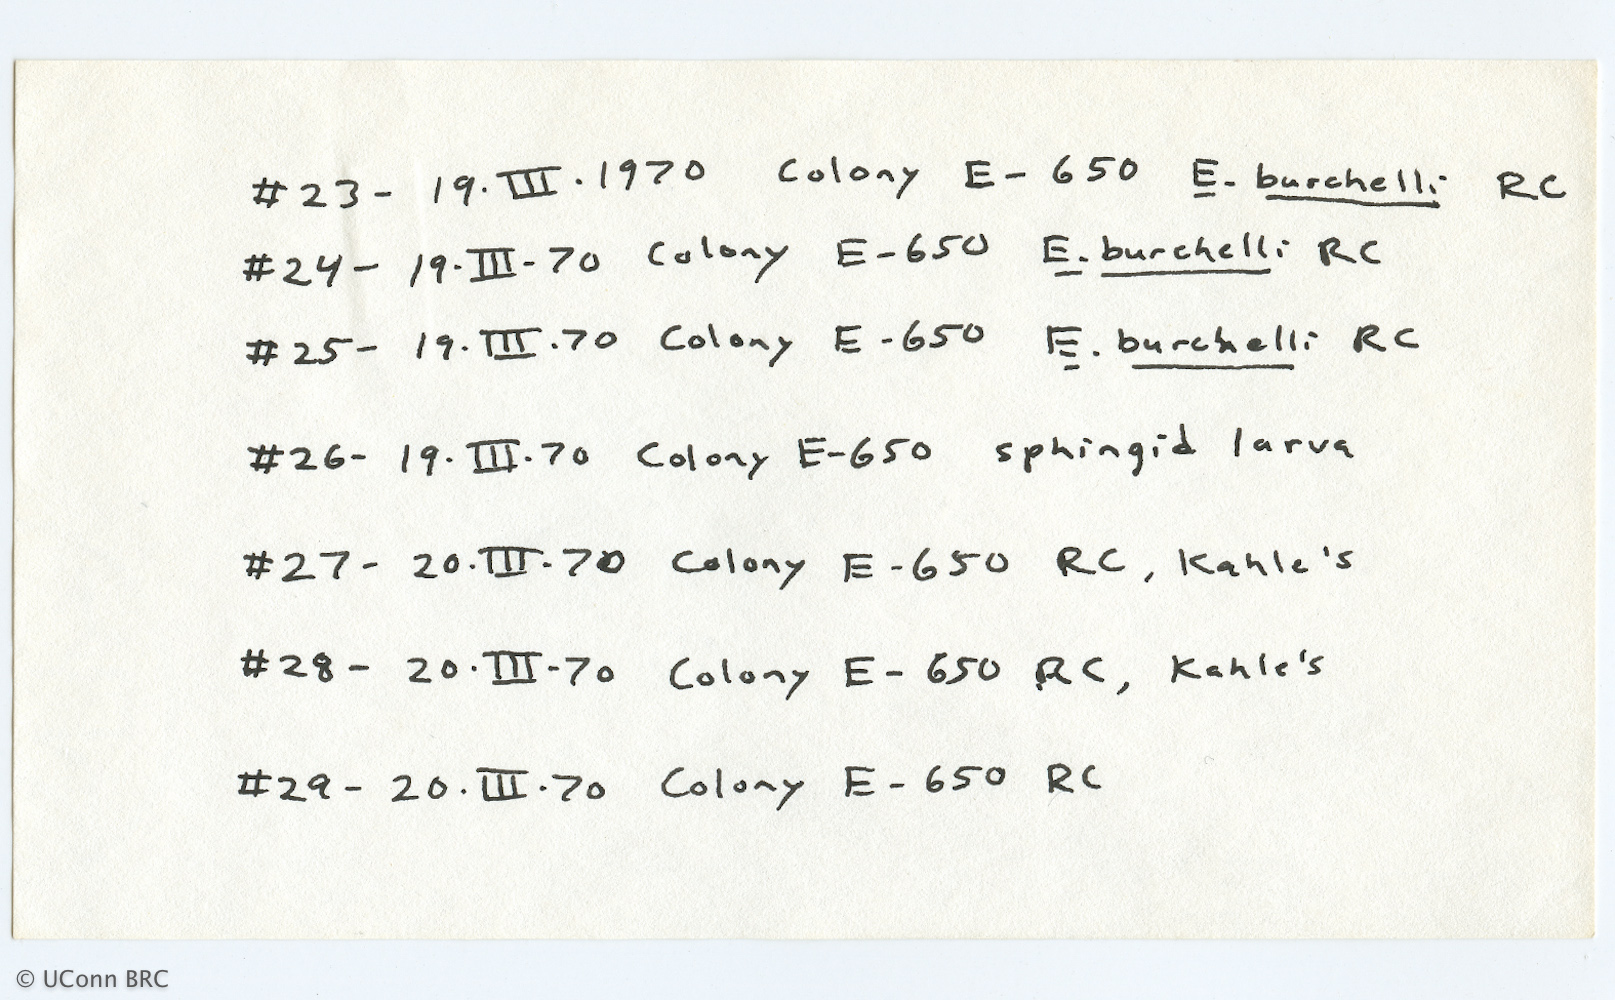 #23- 19.III.1970 Colony E-650 E. burchelli RC
#24- 19.III-70 Colony E-650 E. burchelli RC
#25- 19.III.70 Colony E-650 E. burchelli RC
#26- 19.III.70 Colony E-650 sphingid larva
#27- 20.III.70 Colony E-650 RC, Kahle's
#28- 20.III-70 Colony E-650 RC, Kahle's
#29- 20.III.70 Colony E-650 RC
© UConn BRC